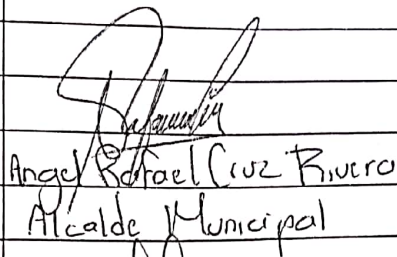 Angel Rafael Cruz Rivera
Alcalde Municipal